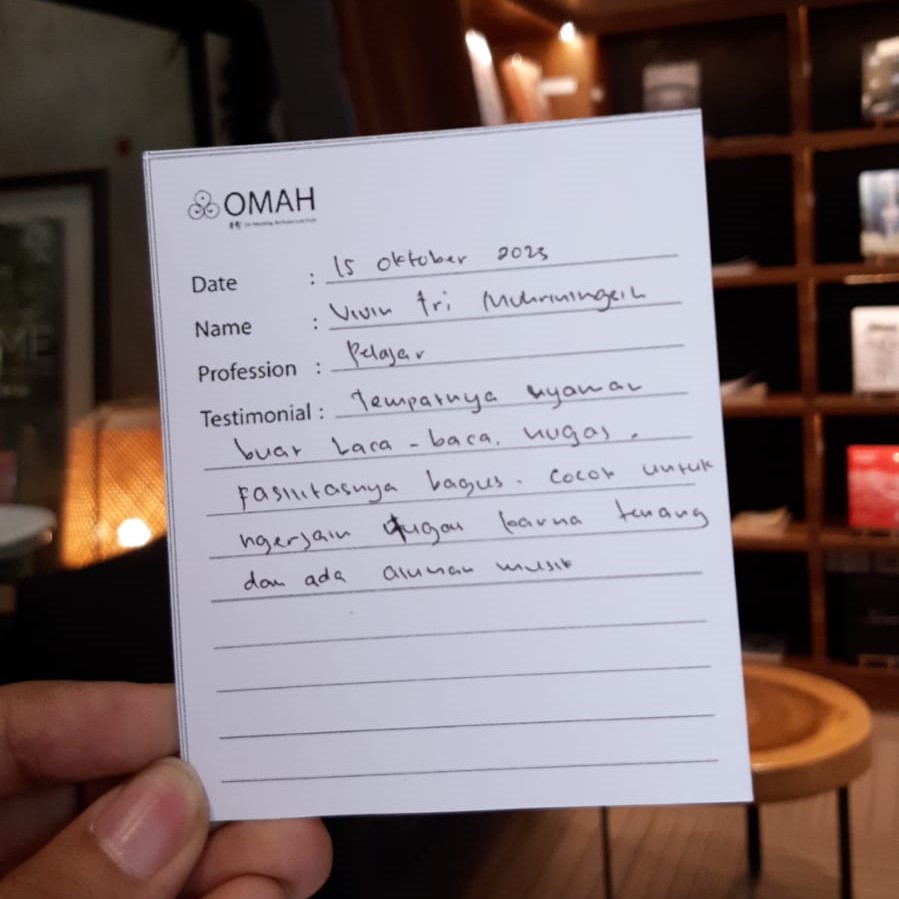 OMAH
Date : 15 Oktober 2023
Name : Vivin Tri
Profession : Pelajar
Testimonial : Tempatnya nyaman
buat baca-baca, nugas.
Fasilitasnya bagus. Cocok untuk
ngerjain tugas karna tenang
dan ada alunan musik